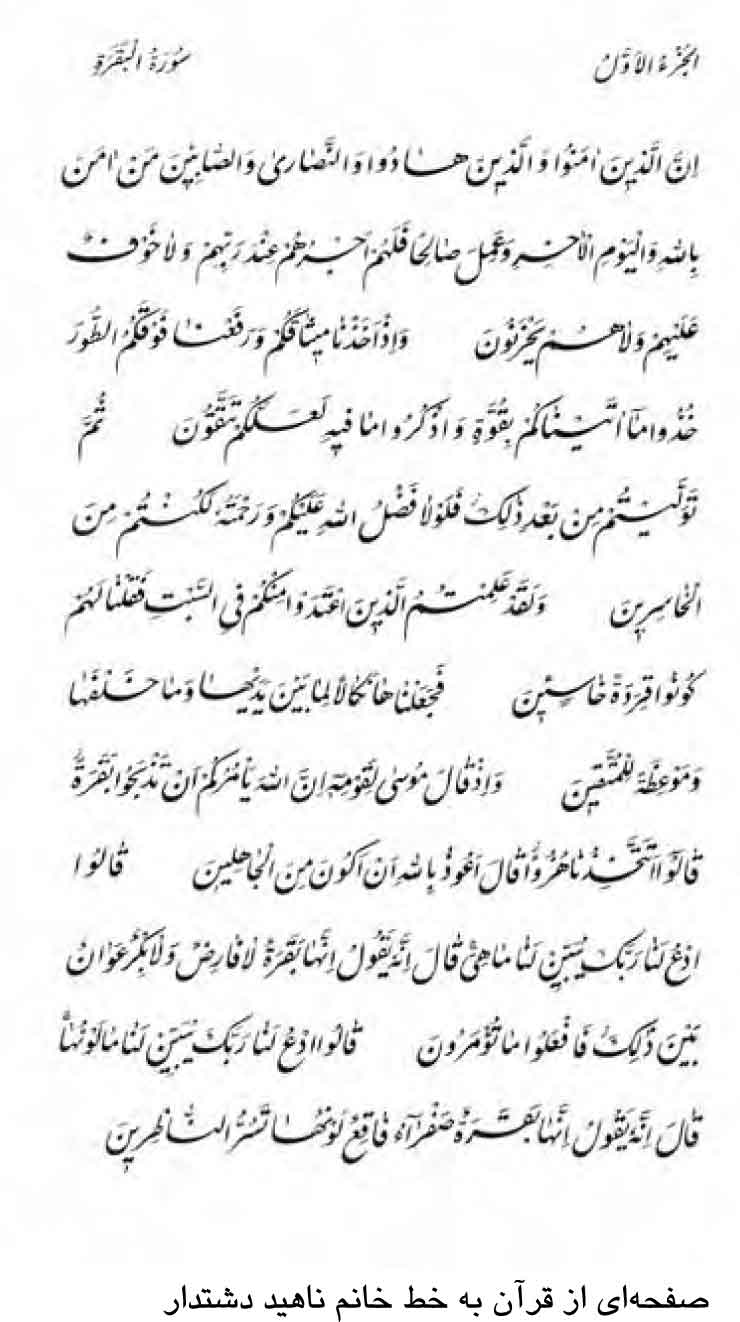 الجُزْءُ الأَوَّلُ
سُورَةُ الْبَقَرَةِ
اِنَّ الَّذينَ اٰمَنُوا وَ الَّذينَ هادُوا وَ النَّصارىٰ وَ الصّابِئينَ مَنْ اٰمَنَ
بِاللهِ وَ الْيَوْمِ الْاٰخِرِ وَ عَمِلَ صالِحًا فَلَهُمْ اَجْرُهُمْ عِنْدَ رَبِّهِمْ وَ لا خَوْفٌ
عَلَيْهِمْ وَ لا هُمْ يَحْزَنُونَ وَ اِذْ اَخَذْنا ميثاقَكُمْ وَ رَفَعْنا فَوْقَكُمُ الطُّورَ
خُذُوا ما اٰتَيْناكُمْ بِقُوَّةٍ وَ اذْكُرُوا ما فيهِ لَعَلَّكُمْ تَتَّقُونَ ثُمَّ
تَوَلَّيْتُمْ مِنْ بَعْدِ ذٰلِكَ فَلَوْلا فَضْلُ اللهِ عَلَيْكُمْ وَ رَحْمَتُهُ لَكُنْتُمْ مِنَ
الْخاسِرينَ وَ لَقَدْ عَلِمْتُمُ الَّذينَ اعْتَدَوْا مِنْكُمْ فِي السَّبْتِ فَقُلْنا لَهُمْ
كُونُوا قِرَدَةً خاسِئينَ فَجَعَلْناها نَكالًا لِما بَيْنَ يَدَيْها وَ ما خَلْفَها
وَ مَوْعِظَةً لِلْمُتَّقينَ وَ اِذْ قالَ مُوسىٰ لِقَوْمِهٖ اِنَّ اللهَ يَأْمُرُكُمْ اَنْ تَذْبَحُوا بَقَرَةً
قالُوا اَتَتَّخِذُنا هُزُوًا قالَ اَعُوذُ بِاللهِ اَنْ اَكُونَ مِنَ الْجاهِلينَ قالُوا
ادْعُ لَنا رَبَّكَ يُبَيِّنْ لَنا ما هِيَ قالَ اِنَّهُ يَقُولُ اِنَّها بَقَرَةٌ لا فارِضٌ وَ لا بِكْرٌ عَوانٌ
بَيْنَ ذٰلِكَ فَافْعَلُوا ما تُؤْمَرُونَ قالُوا ادْعُ لَنا رَبَّكَ يُبَيِّنْ لَنا ما لَوْنُها
قالَ اِنَّهُ يَقُولُ اِنَّها بَقَرَةٌ صَفْرآءُ فاقِعٌ لَوْنُها تَسُرُّ النّاظِرينَ
صفحه‌ای از قرآن به خط خانم ناهید دشتدار